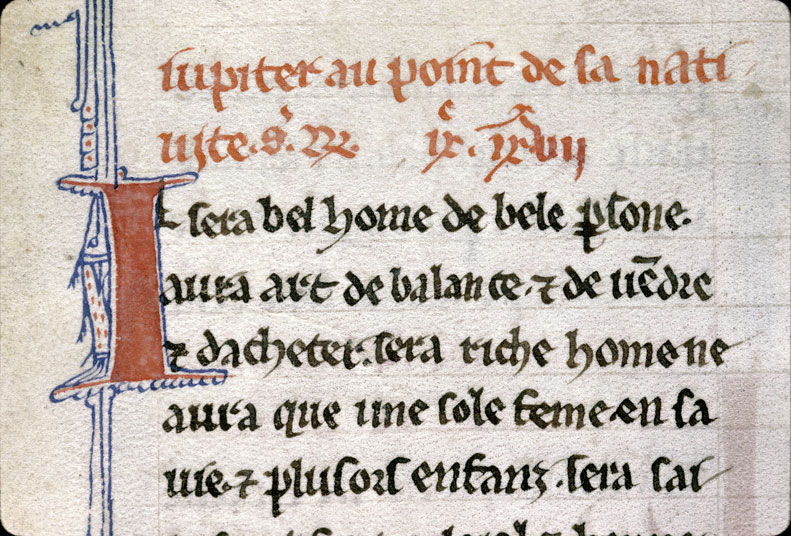 iupiter au point de sa nati
uite.
Il sera bel home de bele ꝑsone.
aura art de balance. ⁊ de uēdre
⁊ dacheter. sera riche home ne
aura que une sole feme. en sa
uie. ⁊ plusors enfanz. sera sai